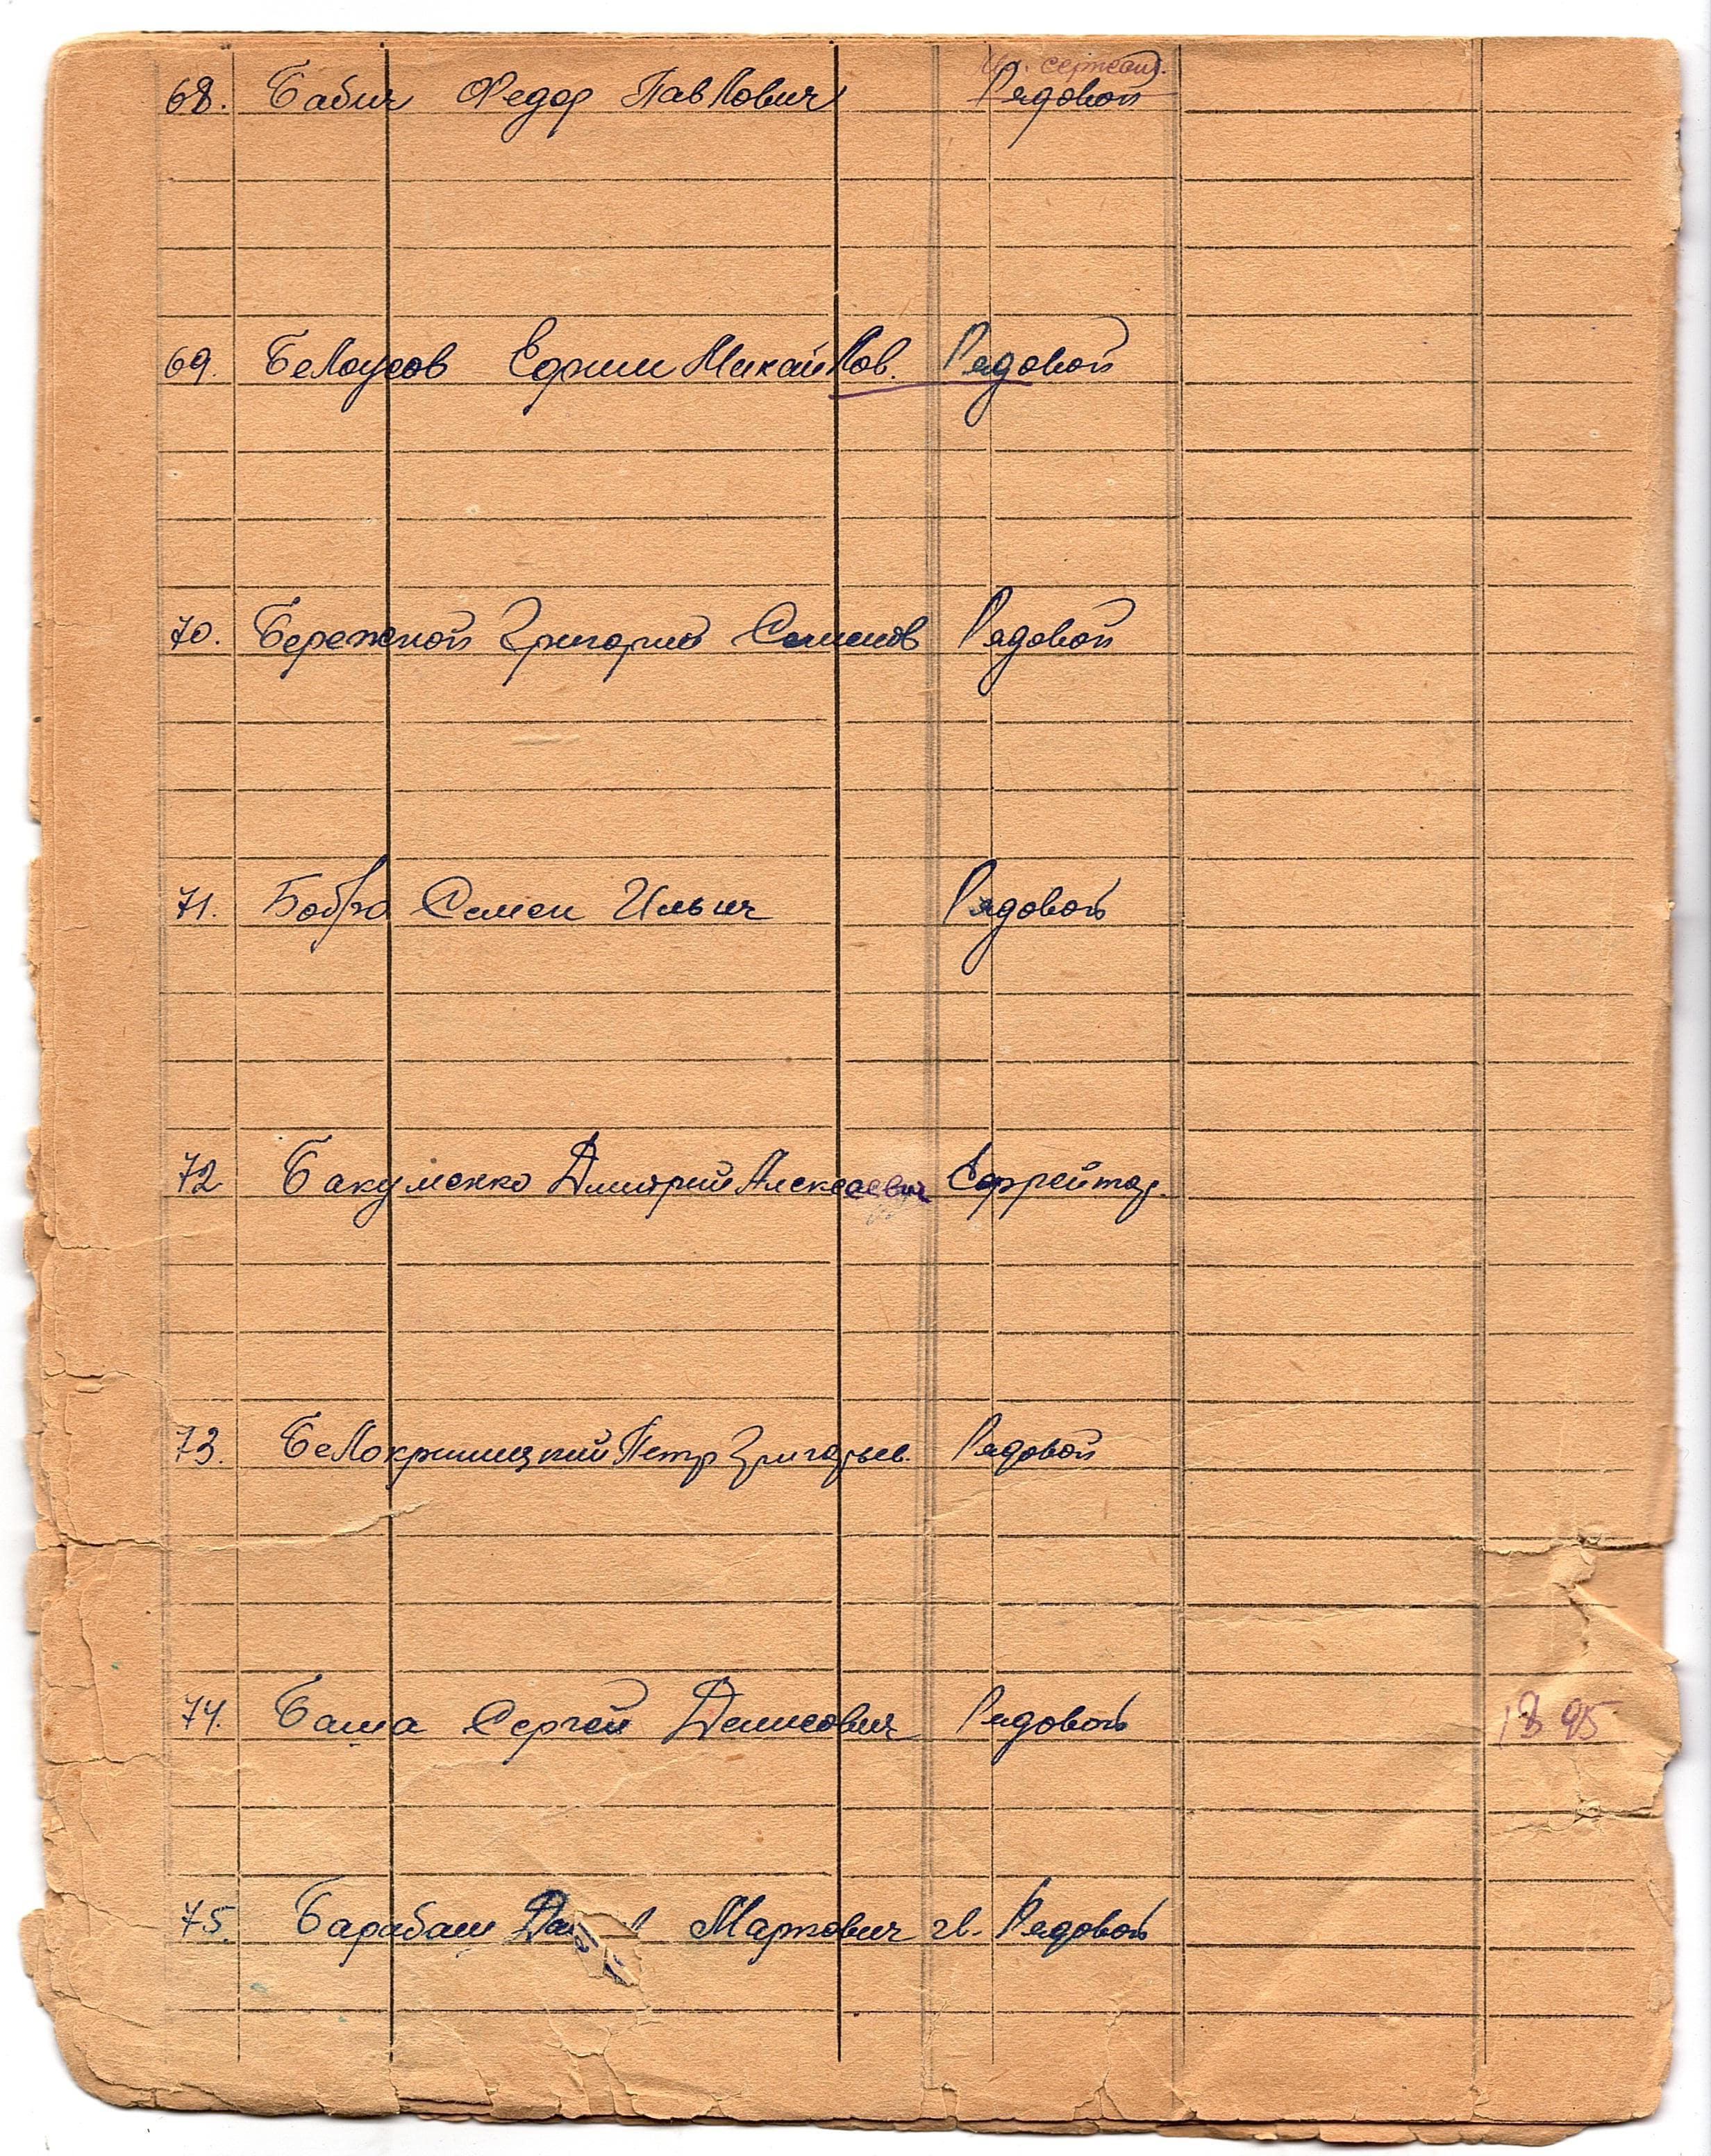 сержант.
68. Бабич Федор Павлович Рядовой
69. Белоусов Ефим Михайлов. Рядовой
70. Бережной Григорий Семенов Рядовой
71. Семен Ильич Рядовой
72 Бакуменко Дмитрий Алексеевич Ефрейтор.
73. Белокриницкий Петр Григорьев. Рядовой
74. Баша Сергей Денисович Рядовой 1895
75. Барабаш Маркович гв. Рядовой